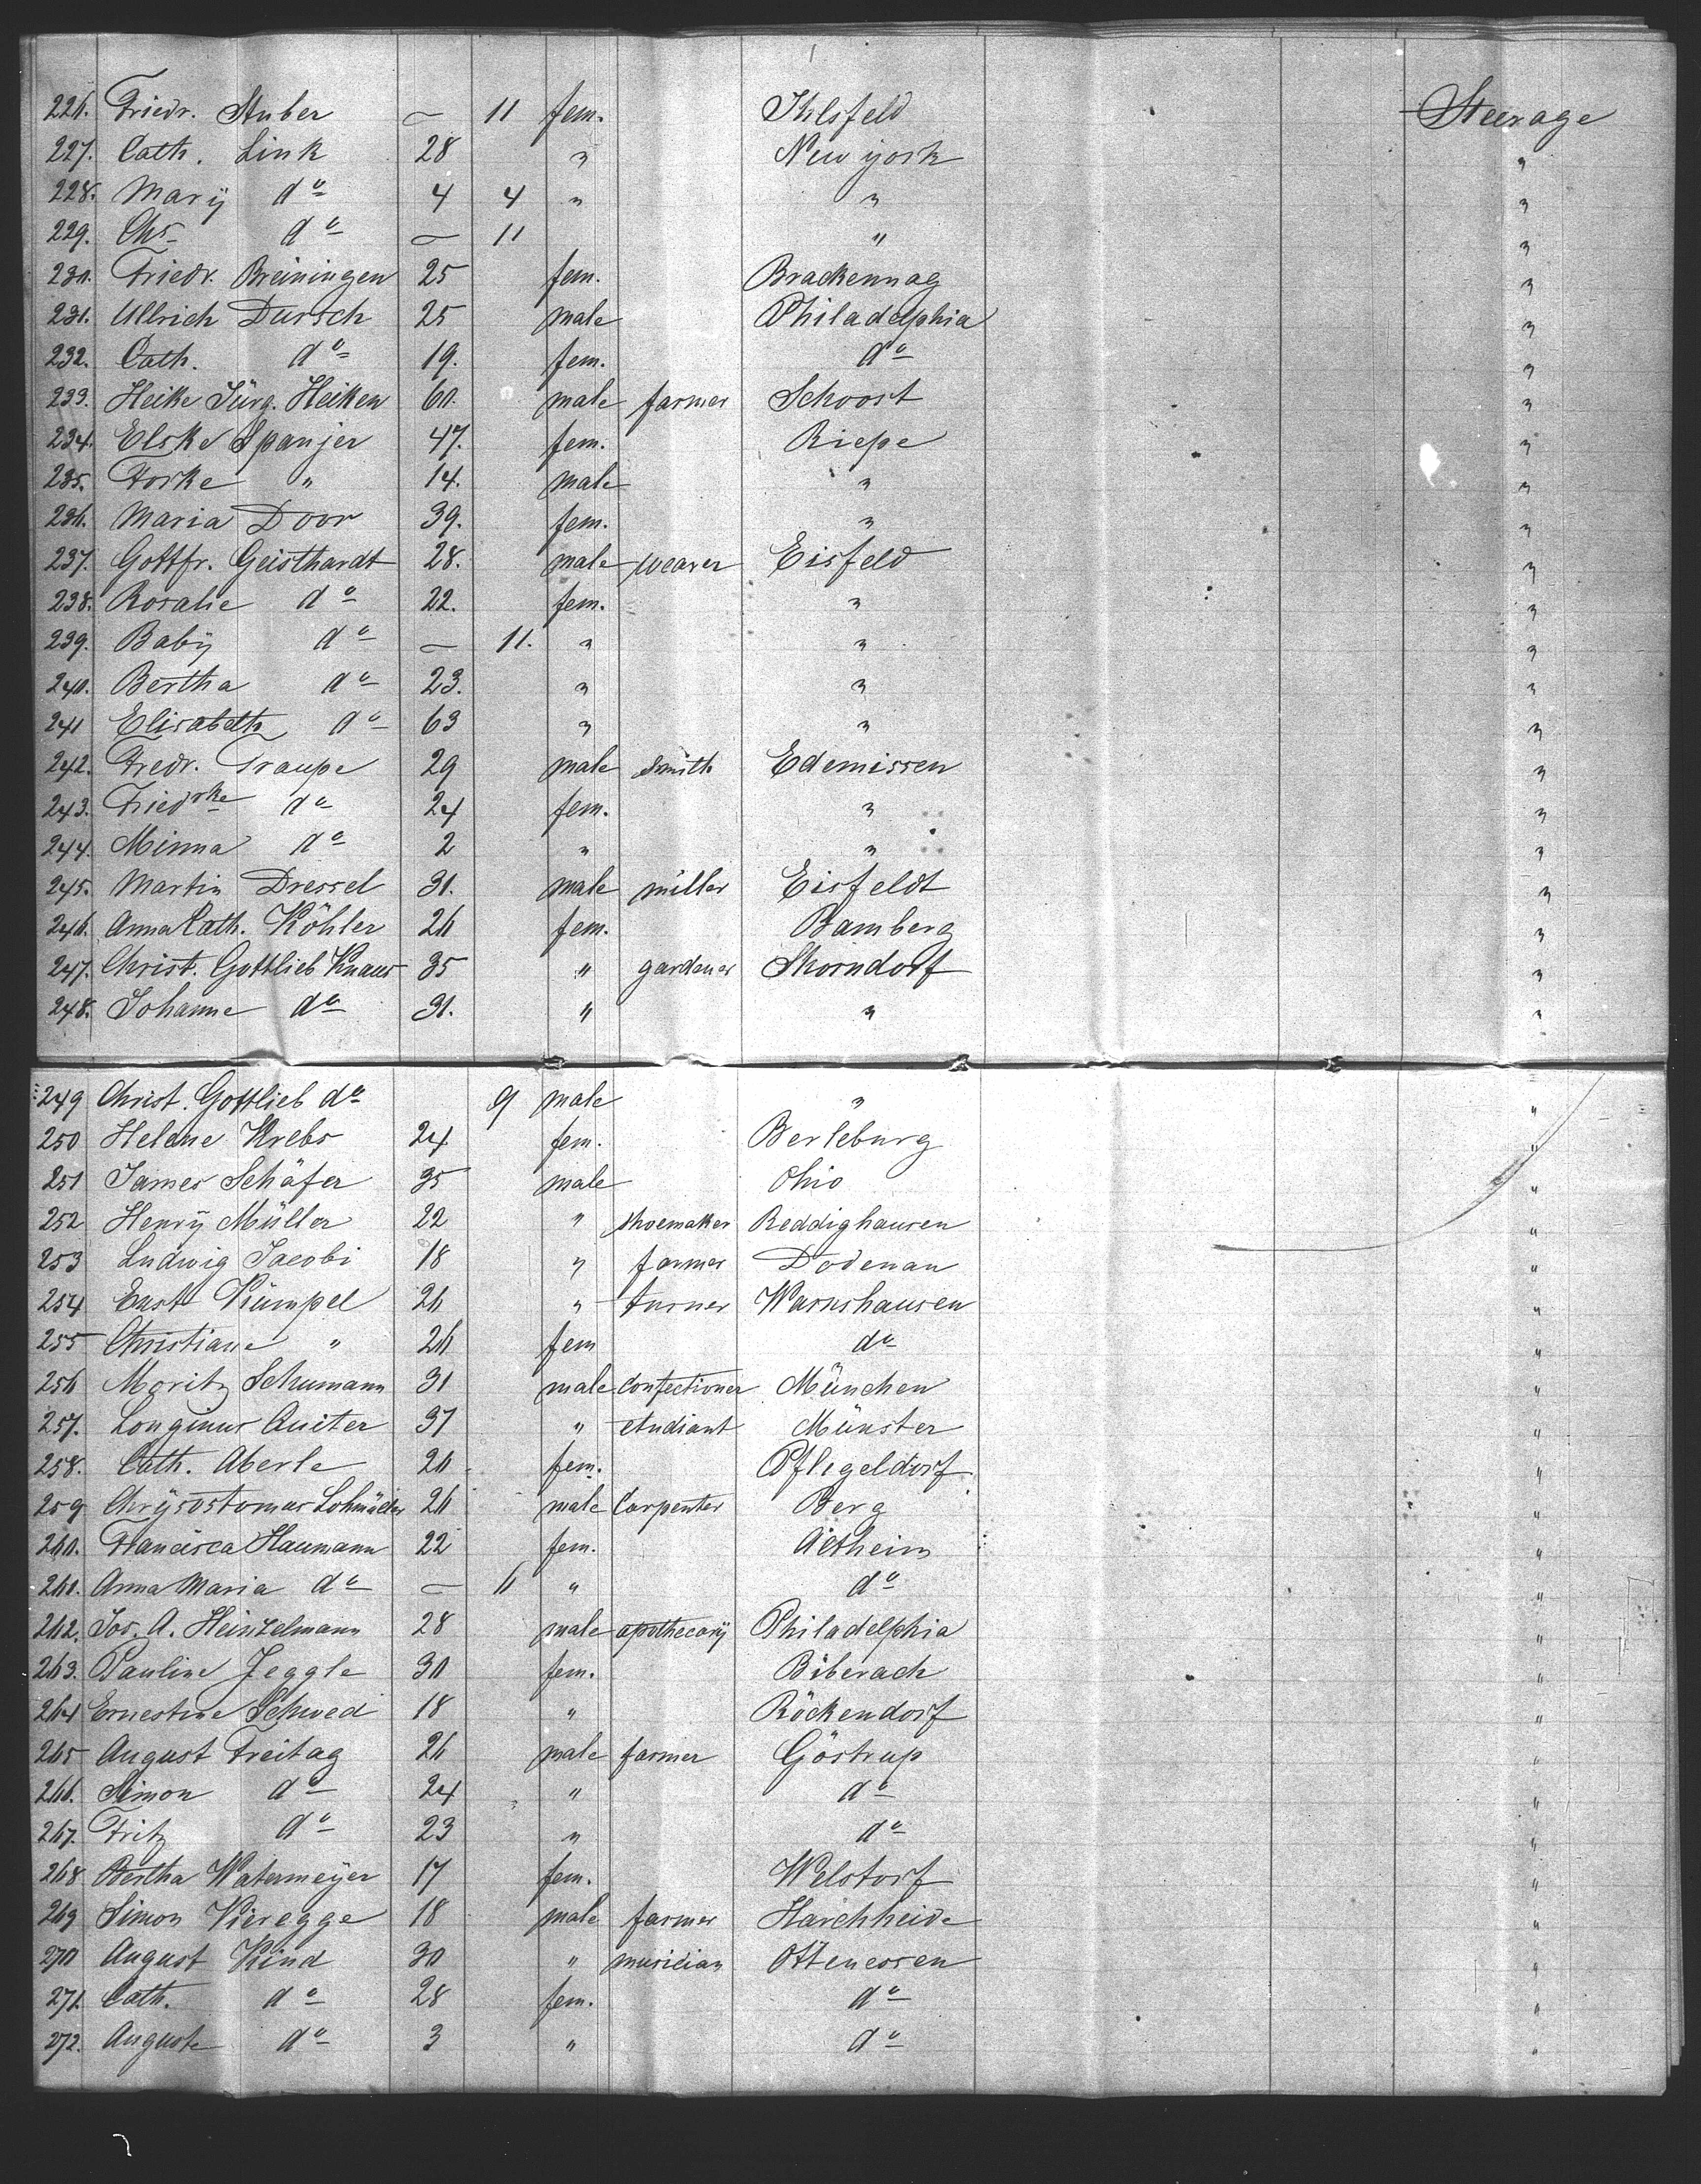 226. Friedr. Stuber — 11 fem. Ihlsfeld Steerage
227. Cath. Link 28 " New york "
228. Marÿ do 4 4 " " "
229. Chs do — 11 " "
230. Friedr. Breiningen 25 fem. Brackennag "
231. Ullrich Dursch 25 male Philadelphia "
232. Cath. do 19. fem. do "
233. Heike Jürg. Heiken 60. male farmer Schoost "
234. Elske Spanjer 47. fem. Riepe "
235. Forke " 14. male " "
236. Maria Door 39. fem. " "
237. Gottfr. Geisthardt 28. male weaver Eisfeld "
238. Rosalie do 22. fem. " "
239. Babÿ do — 11. " " "
240. Bertha do 23. " " "
241 Elisabeth do 63 " " "
242. Fredr. Traupe 29 male smith Edemissen "
243. Friedrke do 24 fem. " "
244. Minna do 2 " " "
245. Martin Dressel 31. male miller Eisfeldt "
246. Anna Cath. Köhler 26 fem. Bamberg "
247. Christ. Gottlieb Knaus 35 " gardener Shorndorf "
248. Johanne do 31. " " "
249 Christ. Gottlieb do 9 male " "
250 Helene Krebs 24 fem. Berleburg "
251 James Schäfer 35 male Ohio "
252 Henrÿ Müller 22 " shoemaker Reddighausen "
253 Ludwig Jacobi 18 " farmer Dodenau "
254 East Kümpel 26 " turner Warnshausen "
255 Christiane " 26 fem do "
256 Moritz Schumann 31 male confectioner München "
257. Longinus Auiter 37 " etudiant Münster "
258. Cath. Aberle 20 fem. Pflegeldorf "
259 Chrÿsostomus 26 male Carpenter Berg "
260. Francisca Haumann 22 fem. Aetheim "
261. Anna Maria do — 11 " do "
262. Jos. A. Heinzelmann 28 male apothecarÿ Philadelphia "
263. Pauline Jeggle 30 fem. Biberach "
264 Ernestine Schwed 18 " Röckendorf "
265 August Freitag 26 male farmer Göstrup "
266. Simon do 24 " do "
267. Fritz do 23 " do "
268 Bertha Watermeÿer 17 fem. Welstorf "
269 Simon Vieregge 18 male farmer Harchheide "
270 August Kind 30 " musician Ottenossen "
271. Cath. do 28 fem. do "
272. Auguste do 3 " do "